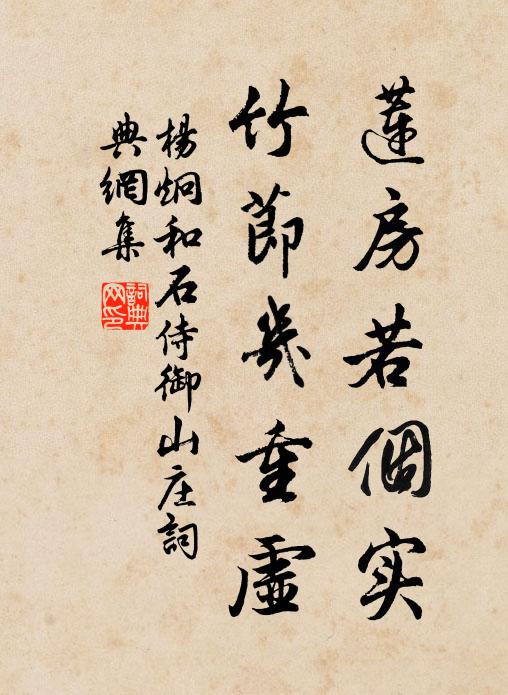 蓮房若個实
竹節幾重虛
楊炯和石侍御山庄詞
典網集
詞典
网印